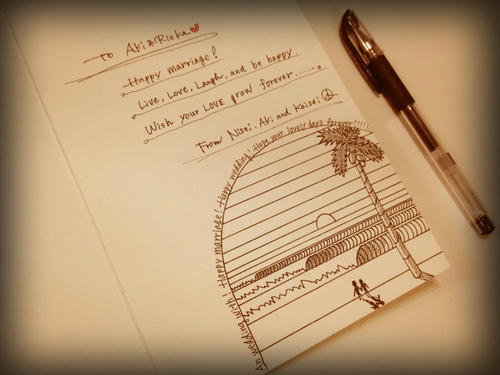 To Aki & Rieka
Happy marriage!
Live, Love, Laugh, and be happy.
Wish your LOVE grow forever......
From Nori. Aki and Kaisei
An wedding wish! Happy marriage! Happy wedding! Hope your lovely days forever!!!!